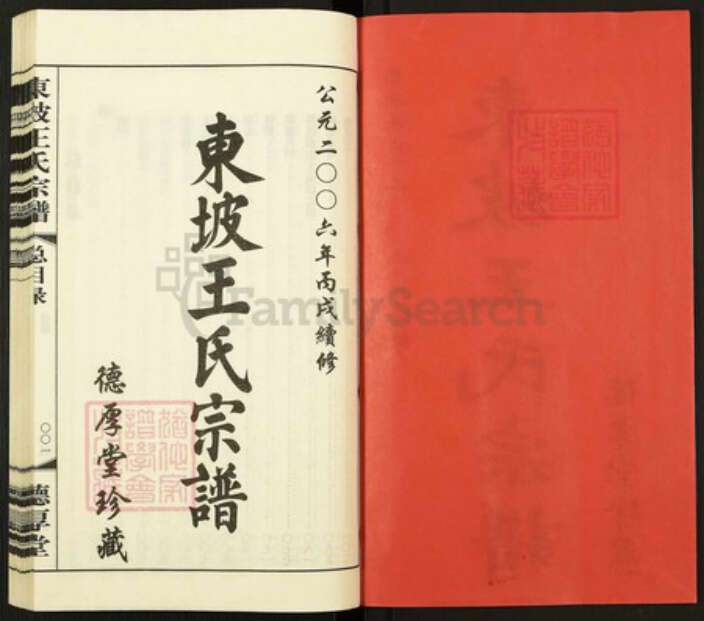 公元二〇〇六年丙戌續修
東坡王氏宗譜
德厚堂珍藏
東坡王氏宗譜
总目录
〇〇一
德厚堂
FamilySearch